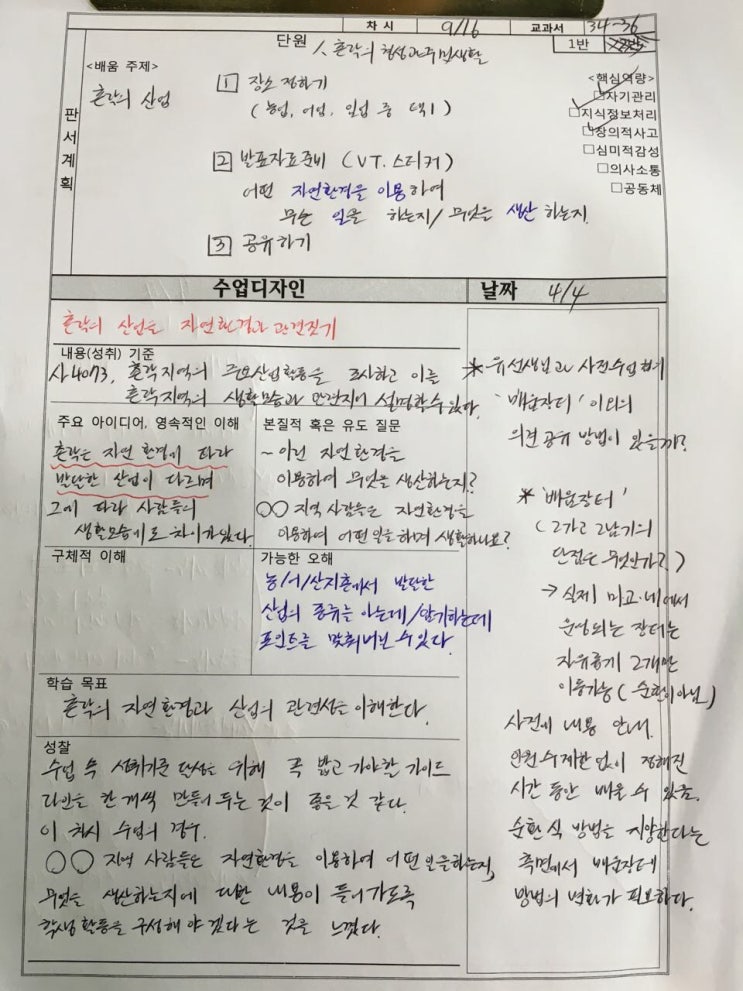 차 시 9/16 교과서 34-36
단원 1. 촌락의 형성과 주민생활
1반
<배움 주제>
촌락의 산업
판서계획
1 장소 정하기
(농업, 어업, 임업 중 택1)
2 발표자료준비 (VT. 스티커)
어떤 자연환경을 이용하여
무슨 일을 하는지/ 무엇을 생산 하는지.
3 공유하기
<핵심역량>
□자기관리
□지식정보처리
□창의적사고
□심미적감성
□의사소통
□공동체
수업디자인
날짜 4/4
촌락의 산업을 자연환경과 관련짓기
내용(성취) 기준
사4073. 촌락지역의 주요산업활동을 조사하고 이를
촌락지역의 생활모습과 연관지어 설명할수있다.
주요 아이디어, 영속적인 이해
촌락은 자연 환경에 따라
발달한 산업이 다르며
그에 따라 사람들의
생활모습에도 차이가있다.
본질적 혹은 유도 질문
~ 어떤 자연환경을
이용하여 무엇을 생산하는지?
○○ 지역 사람들은 자연환경을
이용하여 어떤 일을 하며 생활하나요?
구체적 이해
가능한 오해
농/어/산지촌에서 발달한
산업의 종류를 아는데/암기하는데
포인트를 맞춰버릴 수있다.
학습 목표
촌락의 자연환경과 산업의 관련성을 이해한다.
성찰
수업 속 성취기준 달성을 위해 꼭 밟고 가야할 가이드
라인을 한 개씩 만들어 두는 것이 좋을 것 같다.
이 차시 수업의 경우.
○○ 지역 사람들은 자연환경을 이용하여 어떤일을하는지,
무엇을 생산하는지에 대한 내용이 들어가도록
학생활동을 구성해야겠다는 것을 느꼈다.
* 유선생님과 사전수업협의
'배움장터' 이외의
의견 공유 방법이 있을까?
* '배움장터'
(2가고 2남기의
단점은 무엇인가?)
→ 실제
운영되는 장터는
자유롭게 2개만
이동가능 (순환이아님)
사전에 내용 안내.
인원수제한 없이 정해진
시간 동안 배울 수 있음.
순환식 방법을 지양한다는
측면에서 배움장터
방법의 변화가 필요하다.